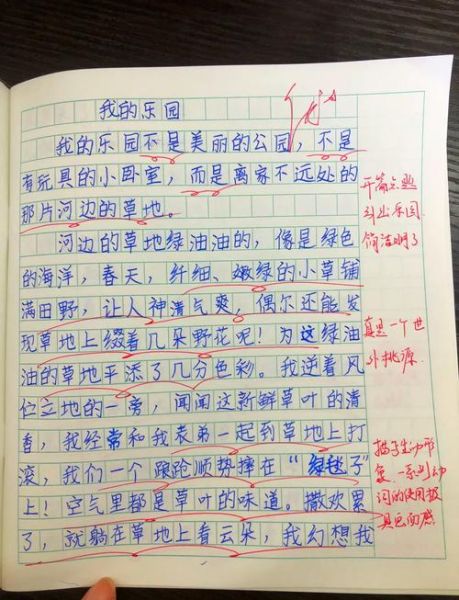 我的乐园
我的乐园不是美丽的公园，不是
有玩具的小卧室，而是离家不远处的
那片河边的草地。
河边的草地绿油油的，像是绿色
的海洋，春天，纤细、嫩绿的小草铺
满田野，让人神清气爽，偶尔还能发
现草地上缀着几朵野花呢！为这绿油
油的草地平添了几分色彩。我逆着风
伫立地的一旁，闻闻这新鲜草叶的清
香，我经常和我表弟一起到草地上打
滚，我们一个踉跄顺势摔在“绿毯子”
上！空气里都是草叶的味道。撒欢累
了，就躺在草地上看云朵，我幻想我
开篇点题
引出乐园
简洁明了
真是一个世
外桃源
描写生动形
象，一系列动
词的使用极
具画面感